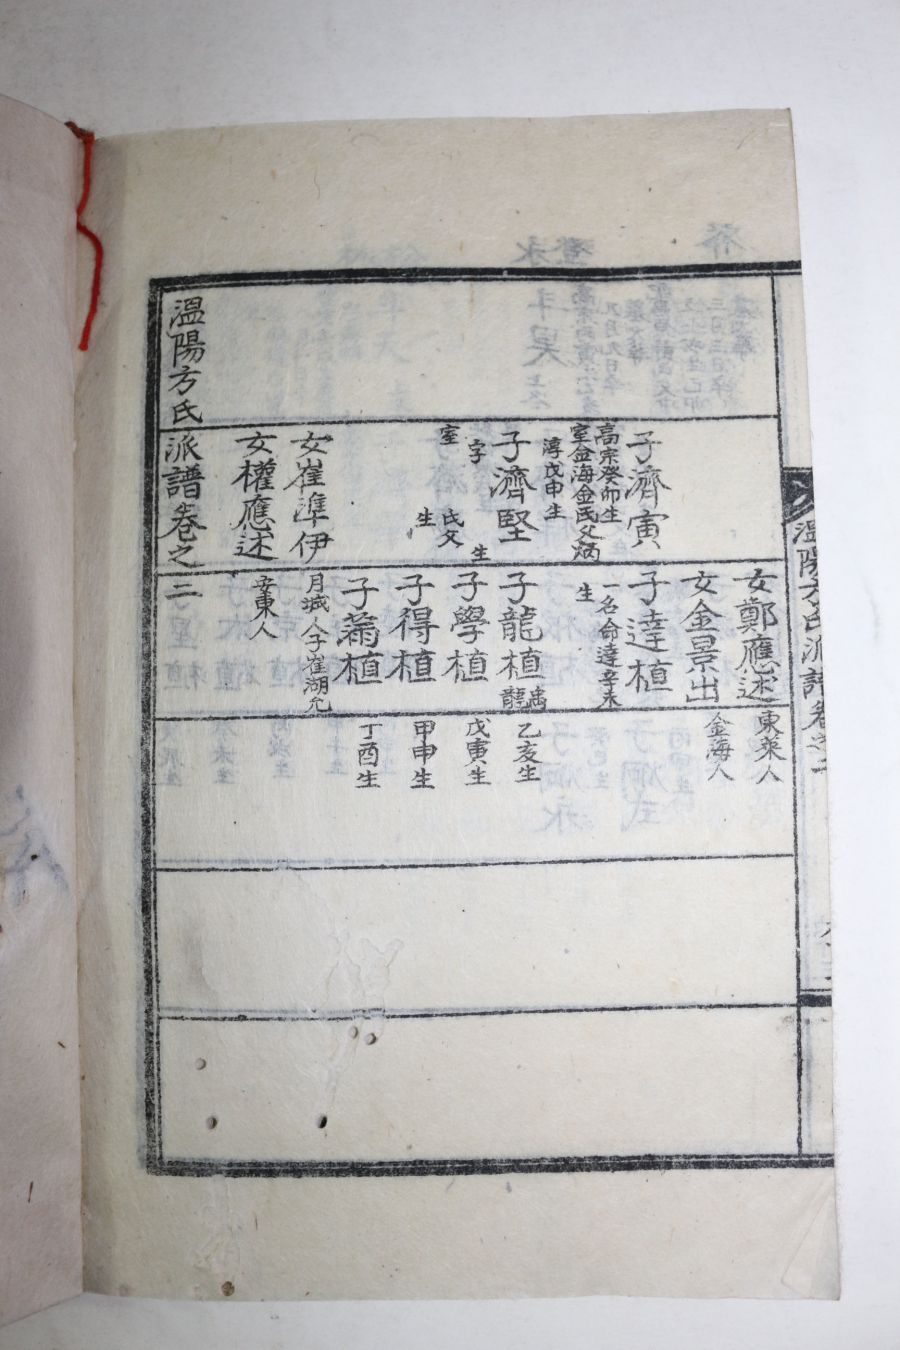 溫陽方氏派譜卷之二
女鄭應述
東萊人
女金景出
金海人
子濟寅
高宗癸卯生
室金海金氏父炳
淳戊申生
子達植
一名命達辛未
生
子濟堅
字 生
室 氏父
生
子龍植
乙亥生
子學植
戊寅生
子得植
甲申生
植
丁酉生
女崔準伊
月城人子崔湖允
女權應述
安東人
溫陽方氏派譜卷之二